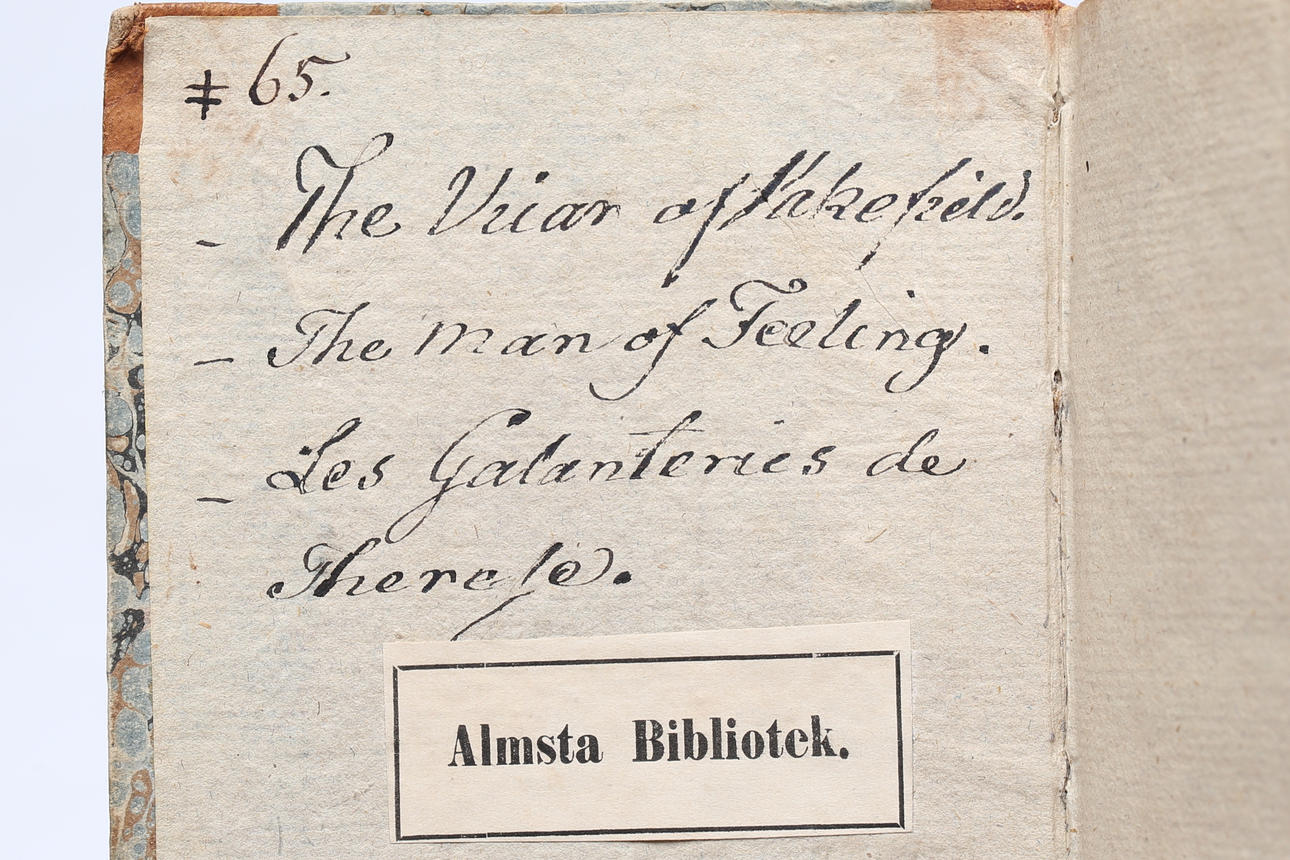 ‡ 65.
- The Vicar of Wakefield.
- The Man of Feeling.
- Les Galanteries de
Therese.
Almsta Bibliotek.